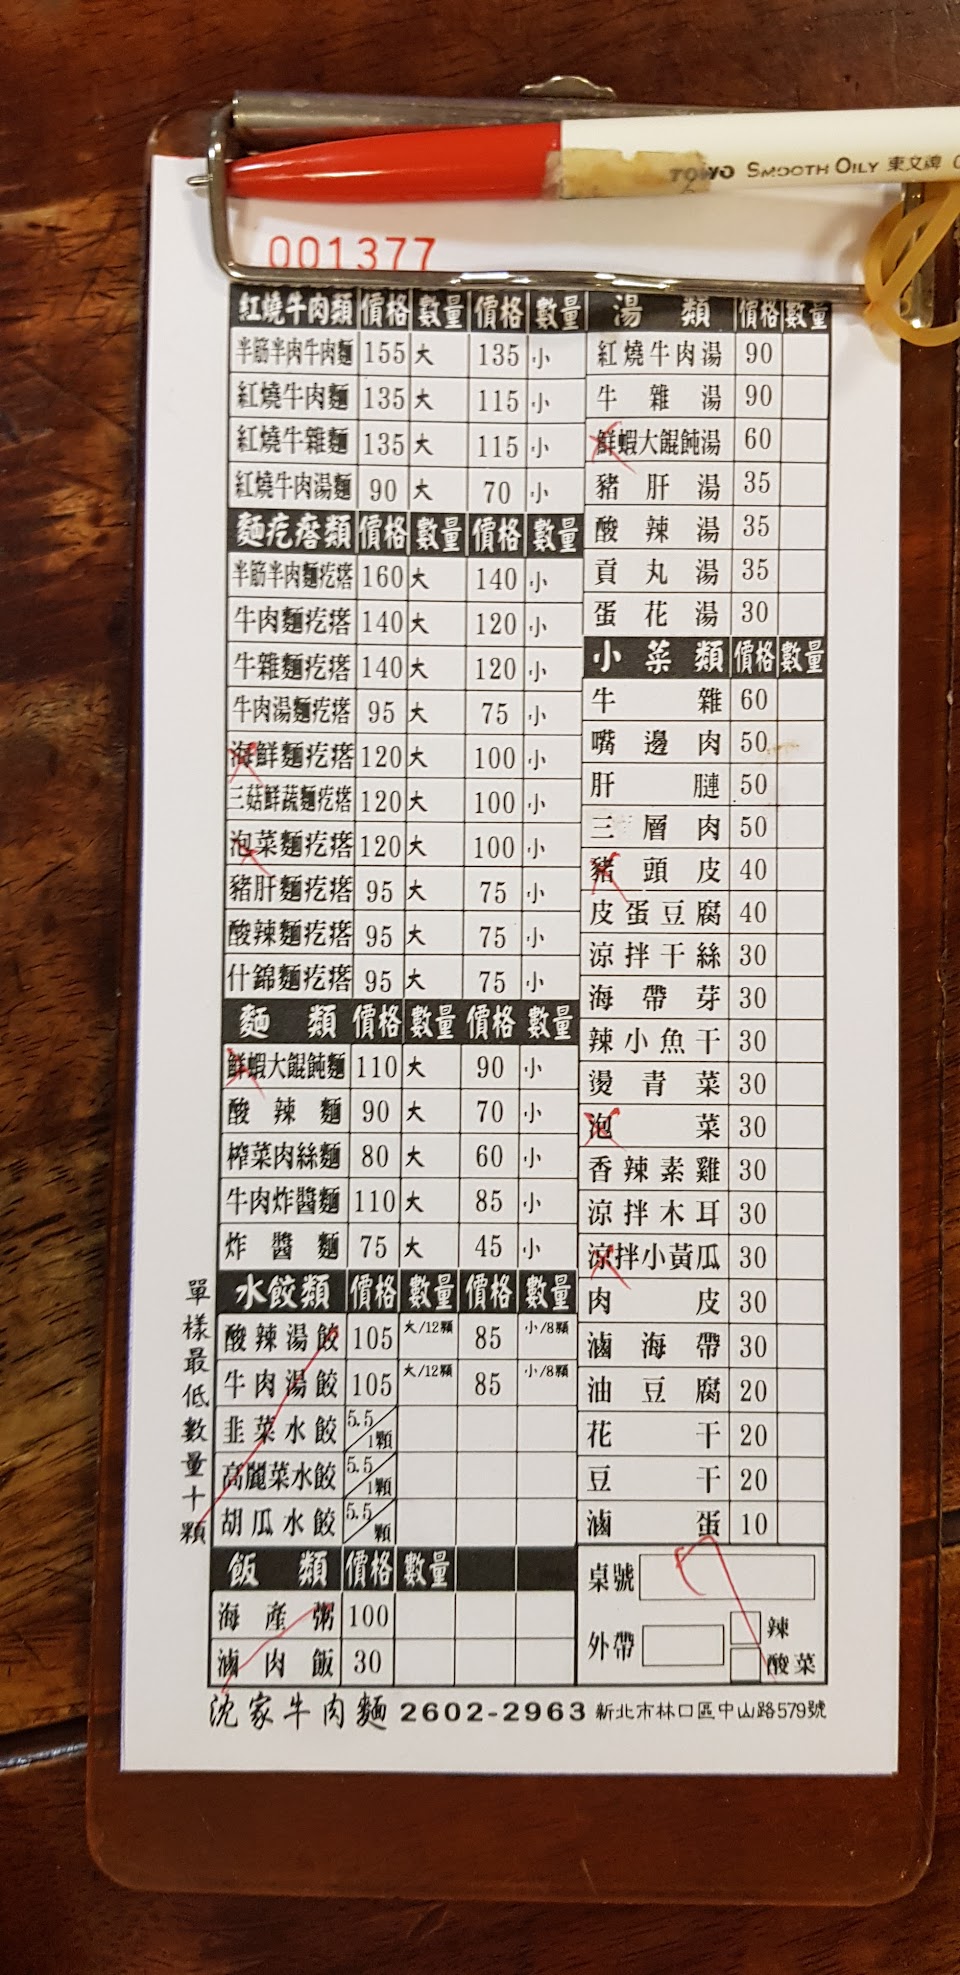 TOIYO SMOOTH OILY 東文牌
001377
紅燒牛肉類 價格 數量 價格 數量
半筋半肉牛肉麵 155 大 135 小
紅燒牛肉麵 135 大 115 小
紅燒牛雜麵 135 大 115 小
紅燒牛肉湯麵 90 大 70 小
麵疙瘩類 價格 數量 價格 數量
半筋半肉麵疙瘩 160 大 140 小
牛肉麵疙瘩 140 大 120 小
牛雜麵疙瘩 140 大 120 小
牛肉湯麵疙瘩 95 大 75 小
海鮮麵疙瘩 120 大 100 小
三菇鮮蔬麵疙瘩 120 大 100 小
泡菜麵疙瘩 120 大 100 小
豬肝麵疙瘩 95 大 75 小
酸辣麵疙瘩 95 大 75 小
什錦麵疙瘩 95 大 75 小
麵類 價格 數量 價格 數量
鮮蝦大餛飩麵 110 大 90 小
酸辣麵 90 大 70 小
榨菜肉絲麵 80 大 60 小
牛肉炸醬麵 110 大 85 小
炸醬麵 75 大 45 小
水餃類 價格 數量 價格 數量
酸辣湯餃 105 大/12顆 85 小/8顆
牛肉湯餃 105 大/12顆 85 小/8顆
韭菜水餃 5.5/1顆
高麗菜水餃 5.5/1顆
胡瓜水餃 5.5/顆
單樣最低數量十顆
飯類 價格 數量
海產粥 100
滷肉飯 30
湯類 價格 數量
紅燒牛肉湯 90
牛雜湯 90
鮮蝦大餛飩湯 60
豬肝湯 35
酸辣湯 35
貢丸湯 35
蛋花湯 30
小菜類 價格 數量
牛雜 60
嘴邊肉 50
肝膧 50
三層肉 50
豬頭皮 40
皮蛋豆腐 40
涼拌干絲 30
海帶芽 30
辣小魚干 30
燙青菜 30
泡菜 30
香辣素雞 30
涼拌木耳 30
涼拌小黃瓜 30
肉皮 30
滷海帶 30
油豆腐 20
花干 20
豆干 20
滷蛋 10
桌號
外帶
辣
酸菜
沈家牛肉麵 2602-2963 新北市林口區中山路579號